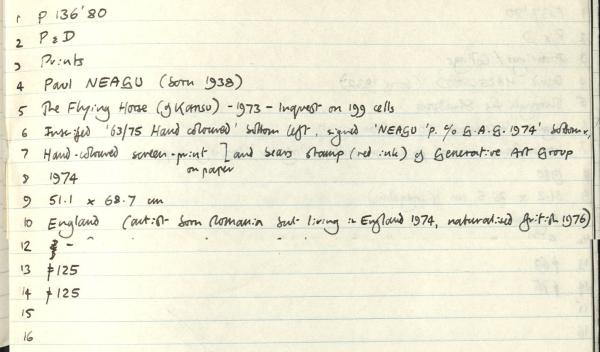 1 P 136'80
2 P & D
3 Prints
4 Paul NEAGU (born 1938)
5 The Flying Horse (of Kansu) - 1973 - Inquest on 199 cells
6 Inscribed '63/75 Hand coloured' bottom left, signed 'NEAGU 'P. c/o G.A.G. 1974' bottom r,
7 Hand-coloured screen-print ] and bears stamp (red ink) of Generative Art Group
on paper
8 1974
9 51.1 x 68.7 cm
10 England (artist born Romania but living in England 1974, naturalised British 1976)
12 -
13 125
14 125
15
16